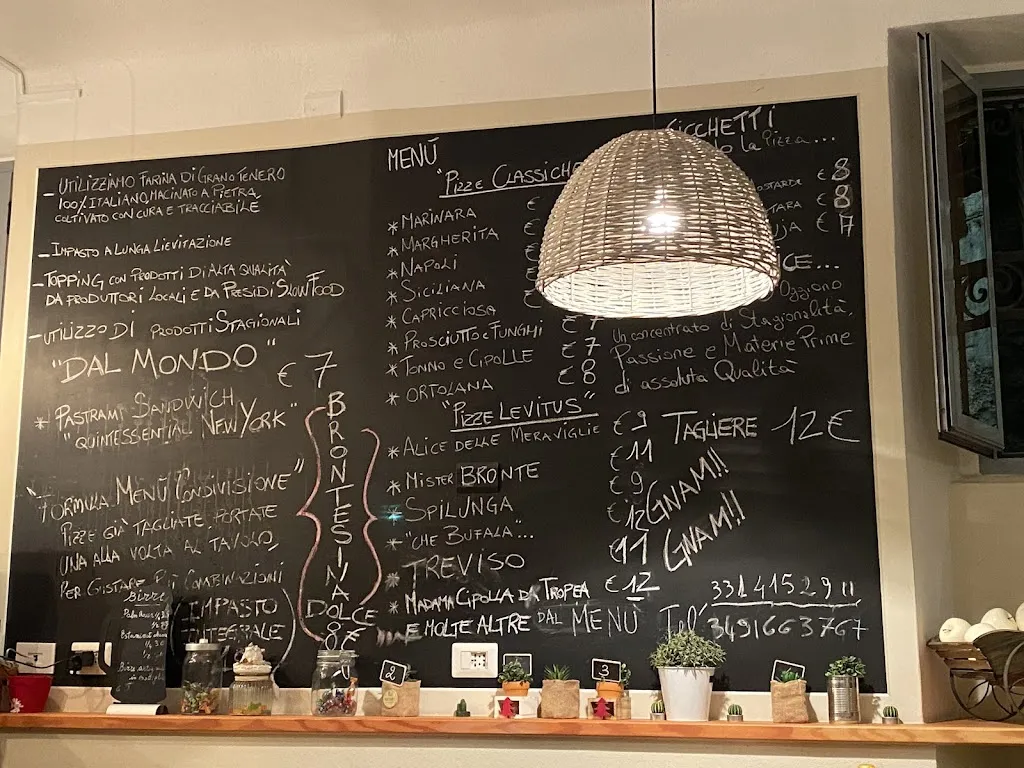 - UTILIZZIAMO FARINA DI GRANO TENERO
100% ITALIANO, MACINATO A PIETRA,
COLTIVATO CON CURA E TRACCIABILE
- IMPASTO A LUNGA LIEVITAZIONE
- TOPPING CON PRODOTTI DI ALTA QUALITÀ
DA PRODUTTORI LOCALI E DA PRESIDI SLOWFOOD
- UTILIZZO DI PRODOTTI STAGIONALI
"DAL MONDO" € 7
* PASTRAMI SANDWICH
"QUINTESSENTIAL NEW YORK"
"FORMULA MENÙ CONDIVISIONE"
PIZZE GIÀ TAGLIATE PORTATE
UNA ALLA VOLTA AL TAVOLO,
PER GUSTARE PIÙ COMBINAZIONI
IMPASTO
INTEGRALE
BRONTESINA
DOLCE
8€
Birre
MENÙ
"PIZZE CLASSICHE
* MARINARA €
* MARGHERITA €
* NAPOLI
* SICILIANA
* CAPRICCIOSA
* PROSCIUTTO E FUNGHI 7
* TONNO E CIPOLLE € 7
* ORTOLANA € 8
"PIZZE LEVITUS"
* ALICE DELLE MERAVIGLIE € 9
* MISTER BRONTE € 11
* SPILUNGA € 9
* "CHE BUFALA... € 12
* TREVISO 11
* MADAMA CIPOLLA DA TROPEA € 12
E MOLTE ALTRE DAL MENÙ
CICCHETTI
la Pizza...
€ 8
€ 8
€ 7
Un concentrato di Stagionalità,
Passione e Materie Prime
di assoluta Qualità
TAGLIERE 12€
GNAM!!
GNAM!!
Tel 3314152911
3491663767
2
3